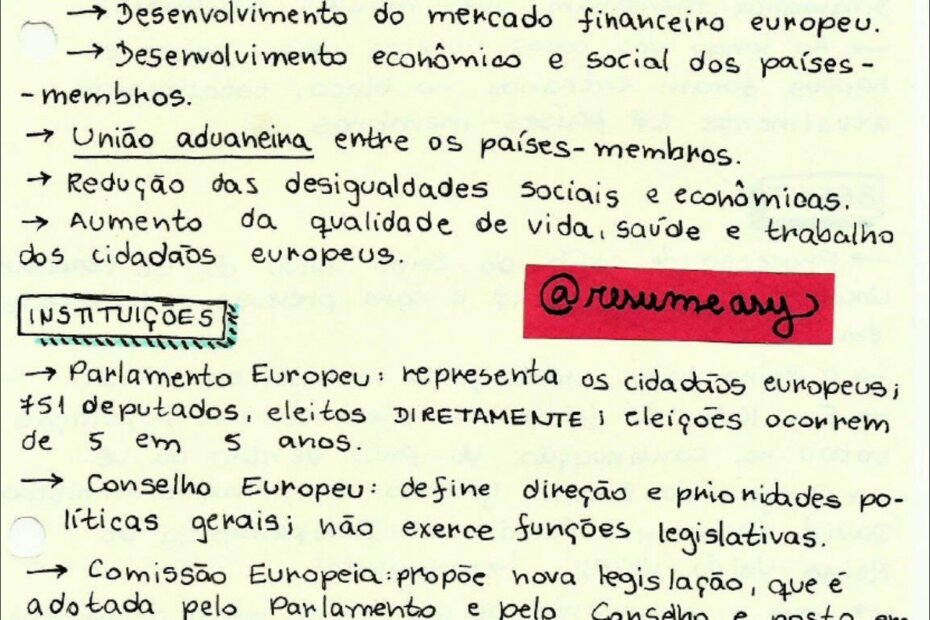 → Desenvolvimento do mercado financeiro europeu.
→ Desenvolvimento econômico e social dos países-
-membros.
→ União aduaneira entre os países-membros.
→ Redução das desigualdades sociais e econômicas.
→ Aumento da qualidade de vida, saúde e trabalho
dos cidadãos europeus.
@resumeasy
INSTITUIÇÕES
→ Parlamento Europeu: representa os cidadãos europeus;
751 deputados, eleitos DIRETAMENTE; eleições ocorrem
de 5 em 5 anos.
→ Conselho Europeu: define direção e prioridades po-
líticas gerais; não exerce funções legislativas.
→ Comissão Europeia: propõe nova legislação, que é
adotada pelo Parlamento e pelo Conselho e posta em